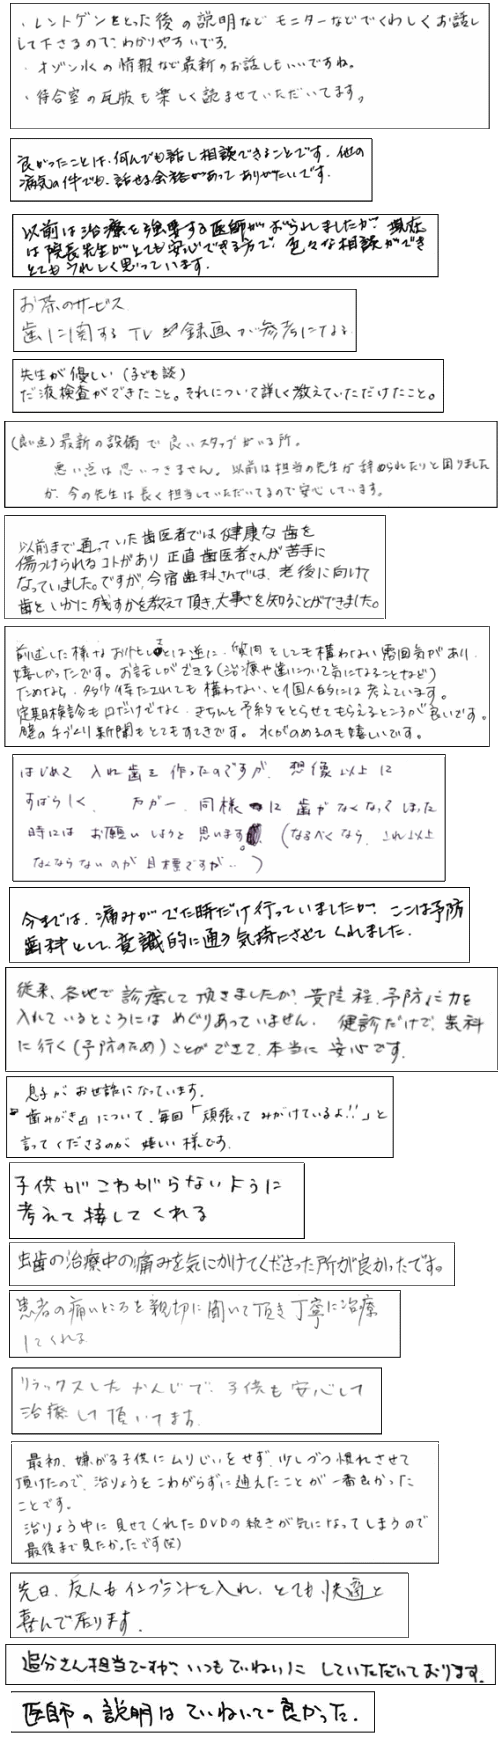 ・レントゲンをとった後の説明など モニターなどでくわしくお話し
して下さるので、わかりやすいです。
・オゾン水の情報など最新のお話しもいいですね。
・待合室の瓦版も楽しく読ませていただいてます。
良かったことは、何んでも話し相談できることです。他の
病気の件でも、話せる余裕があって ありがたいです。
以前は治療を強要する医師がおられましたが、現在
は院長先生がとても安心できる方で、色々な相談ができ
とてもうれしく思っています。
お茶のサービス
歯に関する TV 録画が参考になる
先生が優しい (子ども談)
だ液検査ができたこと。それについて詳しく教えていただけたこと。
(良い点) 最新の設備で良いスタッフがいる所。
悪い点は思いつきません。以前は担当の先生が辞められたりと困りました
が、今の先生は長く担当していただいてるので安心しています。
以前まで通っていた歯医者では健康な歯を
傷つけられるコトがあり 正直歯医者さんが苦手に
なっていました。ですが、今宿歯科さんでは、老後に向けて
歯をいかに残すかを教えて頂き、大事さを知ることができました。
前述した様な とは逆に、質問をしても構わない雰囲気があり、
嬉しかったです。お話しができる(治療や歯について気になることなど)
ためなら、多少待たされても構わない、と個人的には考えています。
定期検診も口だけでなく、きちんと予約をとらせてもらえるところが良いです。
手づくり新聞もとてもすてきです。水がのめるのも嬉しいです。
はじめて 入れ歯を作ったのですが、想像以上に
すばらしく、万が一、同様に歯がなくなってしまった
時には お願いしようと思います。(なるべくなら、これ以上
なくならないのが目標ですが…)
今までは、痛みがでた時だけ行っていましたが、ここは予防
歯科として、意識的に通う気持にさせてくれました。
従来、各地で診療して頂きましたが、貴院程、予防に力を
入れているところにはめぐりあっていません。健診だけで、歯科
に行く(予防のため)ことができて、本当に安心です。
息子がお世話になっています。
『歯みがき』について、毎回「頑張ってみがけているよ!!」と
言ってくださるのが嬉しい様です。
子供がこわがらないように
考えて接してくれる
虫歯の治療中の痛みを気にかけてくださった所が良かったです。
患者の痛いところを親切に聞いて頂き丁寧に治療
してくれる
リラックスしたかんじで、子供も安心して
治療して頂いてます。
最初、嫌がる子供にムリじいをせず、少しづつ慣れさせて
頂けたので、治りょうをこわがらずに通えたことが一番良かった
ことです。
治りょう中に見せてくれたDVDの続きが気になってしまうので
最後まで見たかったです(笑)
先日、友人もインプラントを入れ、とても快適と
喜んで居ります。
追分さん担当ですが、いつもていねいにしていただいております。
医師の説明はていねいで良かった。